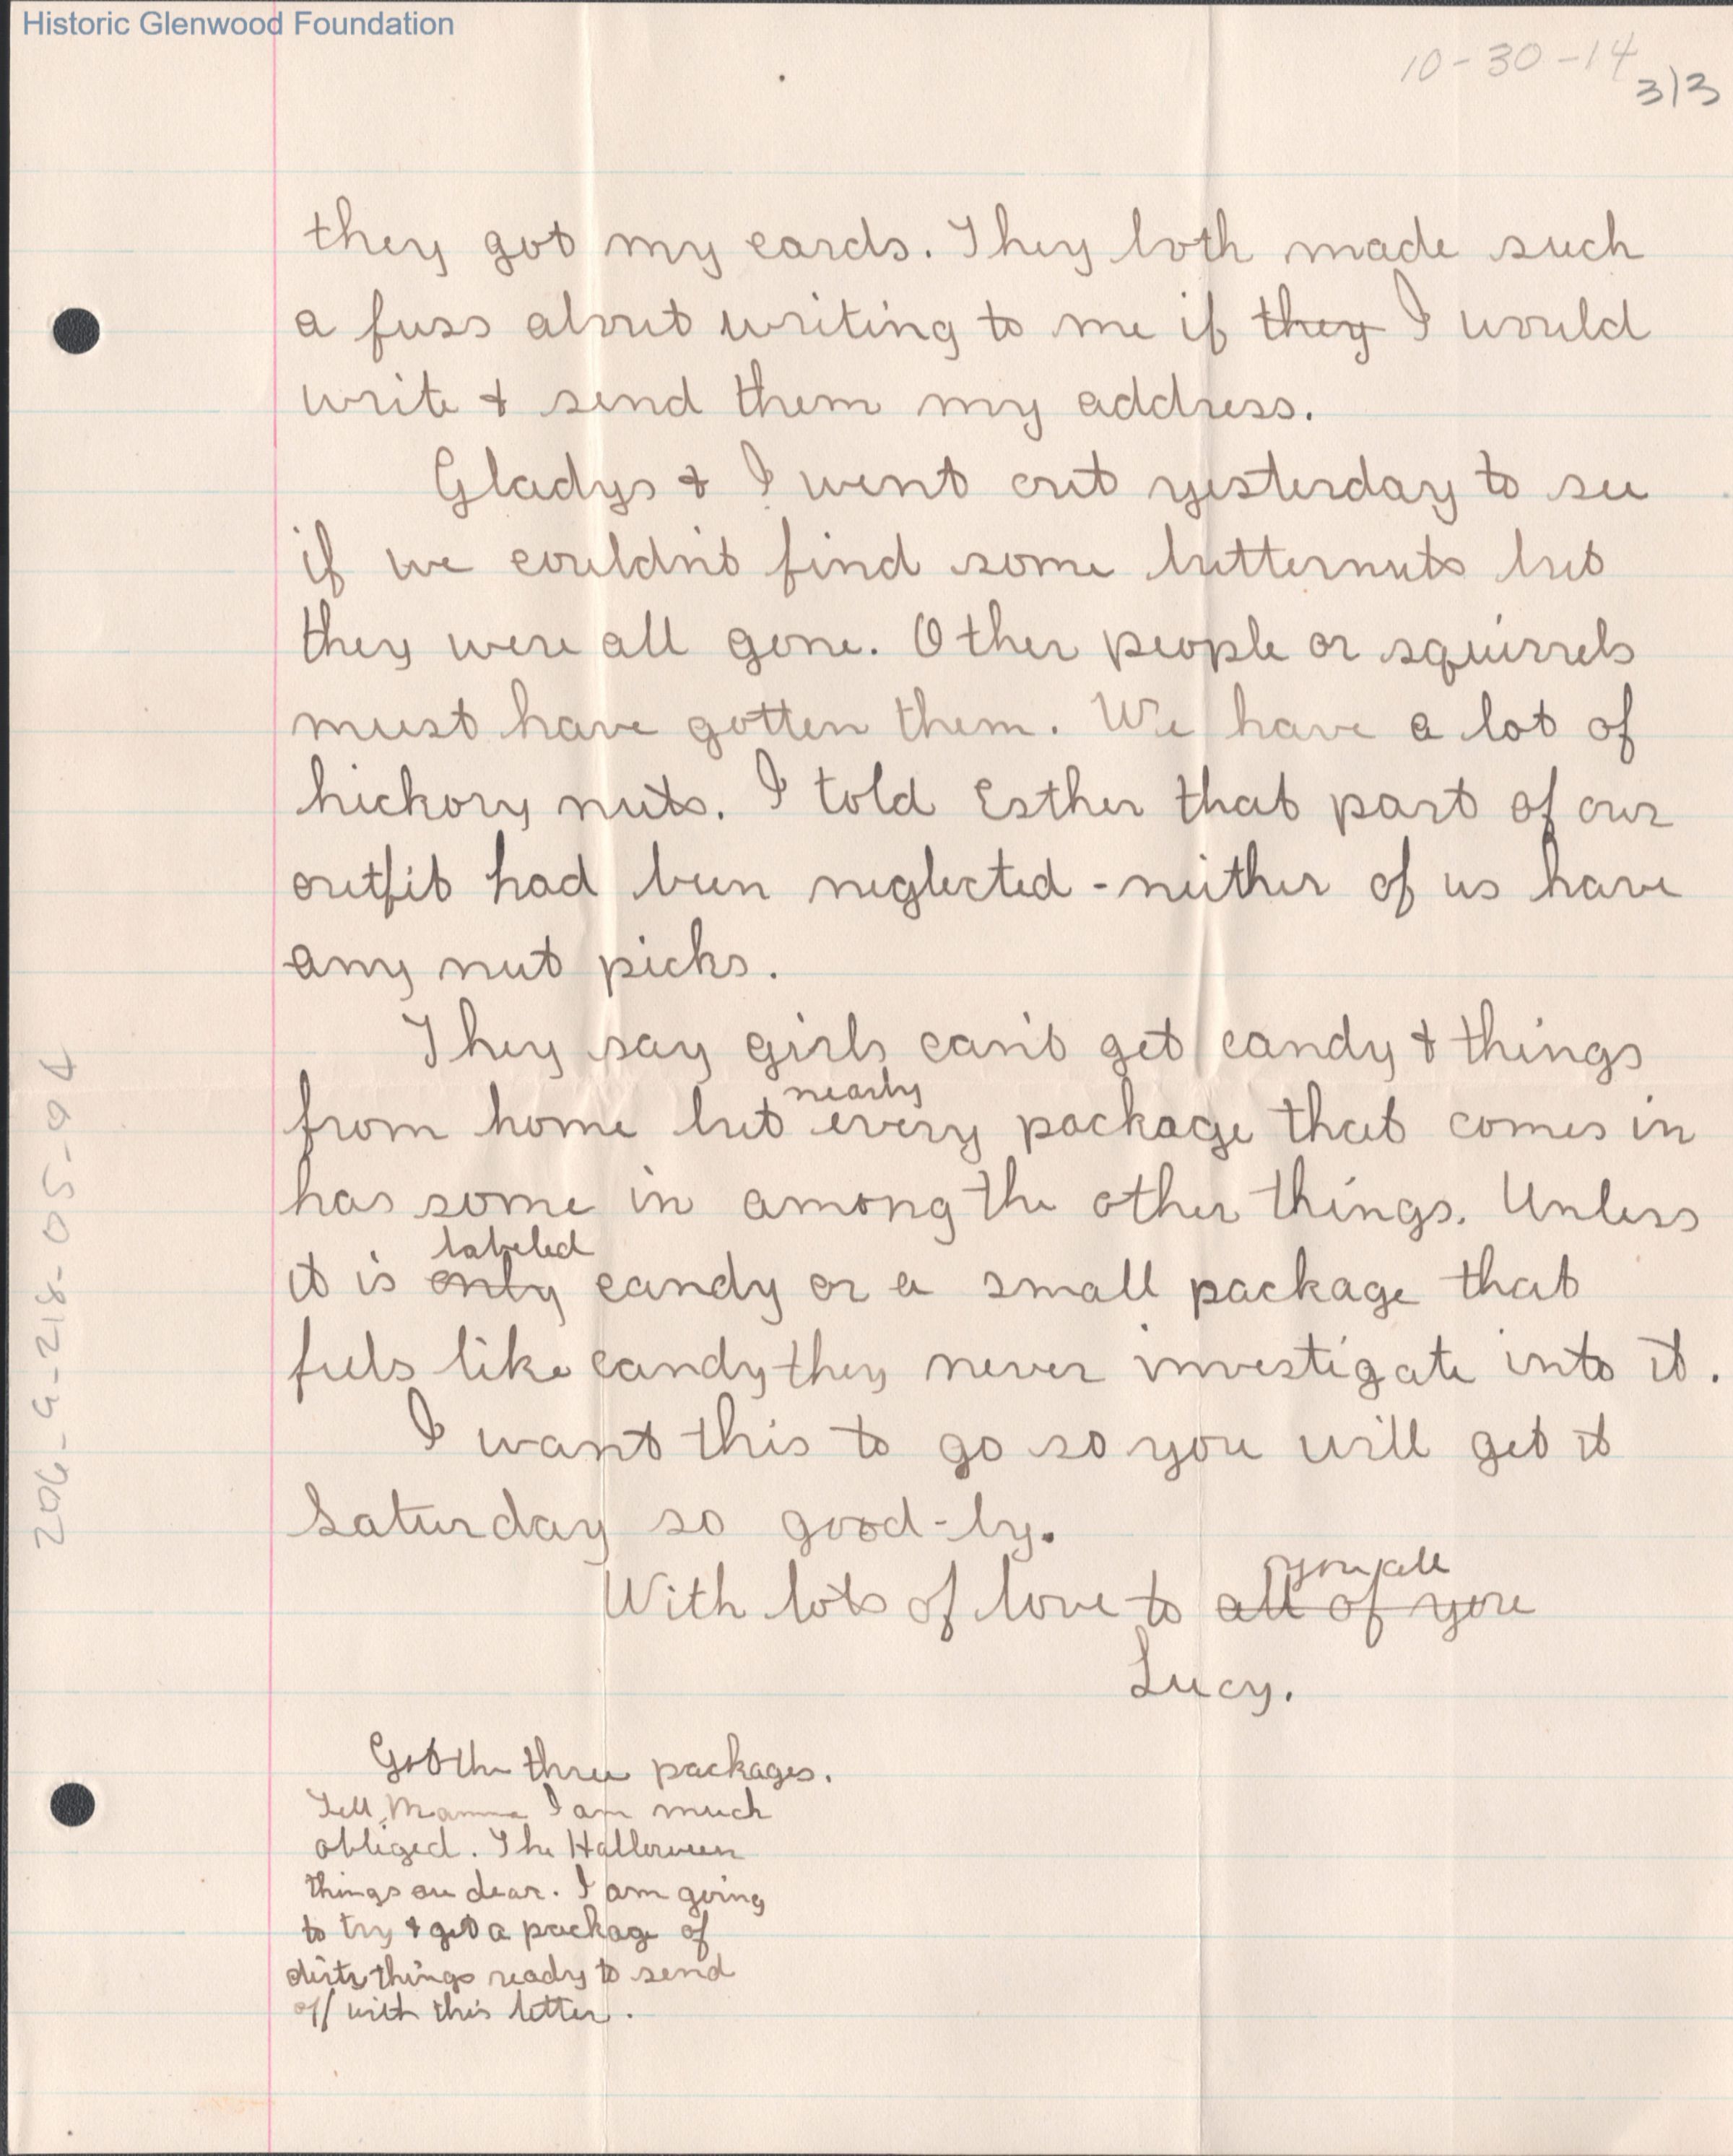 Historic Glenwood Foundation
10-30-14
3/3
they got my cards. They both made such
a fuss about writing to me if they I would
write & send them my address.
Gladys & I went out yesterday to see
if we couldn't find some butternuts but
they were all gone. Other people or squirrels
must have gotten them. We have a lot of
hickory nuts. I told Esther that part of our
outfit had been neglected - neither of us have
any nut picks.
They say girls can't get candy & things
nearly
from home but every package that comes in
has some in among the other things. Unless
labeled
it is only candy or a small package that
feels like candy they never investigate into it.
I want this to go so you will get it
Saturday so good-by.
you all
With lots of love to all of you
Lucy.
Got the three packages.
Tell Mamma I am much
obliged. The Halloween
things are dear. I am going
to try & get a package of
dirty things ready to send
off with this letter.
206-9-218-05-94